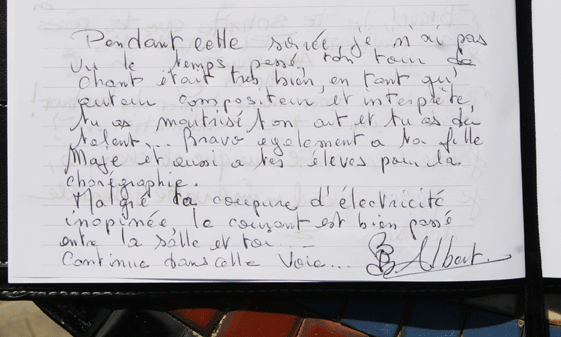 Pendant cette soirée, je n'ai pas
vu le temps passé, ton tour de
chant était très bien, en tant qu'
auteur compositeur et interprète,
tu as maitrisé ton art et tu as du
talent... Bravo egalement a ta fille
Maje et aussi a tes élèves pour la
chorégraphie.
Malgré ta coupure d'électricité
inopinée, le courant est bien passé
entre la salle et toi....
Continue dans cette voie... Albert